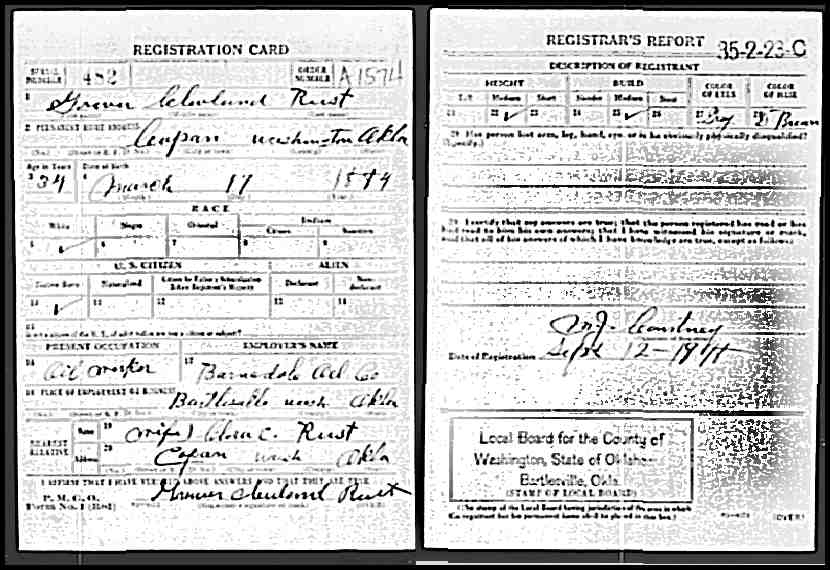 REGISTRATION CARD
SERIAL NUMBER 482 ORDER NUMBER A1574
1 Grover Cleveland Rust
2 PERMANENT HOME ADDRESS
Copan Washington Okla
Age in Years Date of Birth
3 34 4 March 17 1884
RACE
White Negro Oriental Indian
Citizen
5 6 7 8 9
U. S. CITIZEN ALIEN
Native Born Naturalized Declarant Non-declarant
10 11 12 13 14
15
PRESENT OCCUPATION EMPLOYER'S NAME
16 Oil worker 17 Barnsdale Oil Co
18 PLACE OF EMPLOYMENT OR BUSINESS
Bartlesville Wash Okla
NEAREST RELATIVE Name 19 (wife) C. Rust
Address 20 Copan Wash Okla
I AFFIRM THAT I HAVE VERIFIED ABOVE ANSWERS AND THAT THEY ARE TRUE
P. M. G. O.
Form No. 1 (Red) Grover Cleveland Rust
REGISTRAR'S REPORT 35-2-23-C
DESCRIPTION OF REGISTRANT
HEIGHT BUILD COLOR OF EYES COLOR OF HAIR
Tall Medium Short Slender Medium Stout
21 22 23 24 25 26 27 28 Brown
29 Has person lost arm, leg, hand, eye, or is he obviously physically disqualified?
(Specify.)
30 I certify that my answers are true; that the person registered has read or has
had read to him his own answers; that I have witnessed his signature or mark,
and that all of his answers of which I have knowledge are true, except as follows:
Courtney
Date of Registration Sept 12
Local Board for the County of
Washington, State of Oklahoma
Bartlesville, Okla.
(STAMP OF LOCAL BOARD)
(The stamp of the Local Board having jurisdiction of the area in which
the registrant has his permanent home shall be placed in this box.)
(OVER)